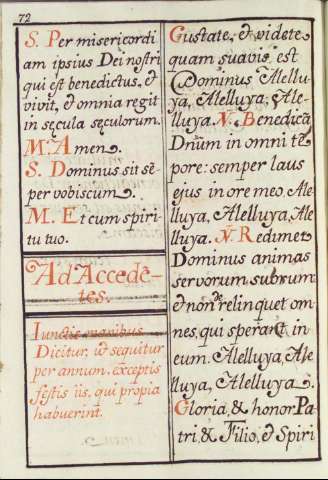 72
S. Per misericordi
am ipsius Dei nostri
qui est benedictus, &
vivit, & omnia regit
in sęcula sęculorum.
M. Amen.
S. Dominus sit sē-
per vobiscum.
M. Et cum spiri-
tu tuo.
Ad Accedē-
tes.
Iunctis manibus
Dicitur, & sequitur
per annum, exceptis
festis iis, qui propia
habuerint.
Gustate, & videte
quam suavis est
Dominus Alellu
ya, Alelluya, Ale-
lluya. V. Benedicā
Dn̄um in omni tē
pore: semper laus
ejus in ore meo. Ale
lluya, Alelluya, Ale
lluya. V. Redimet
Dominus animas
servorum suorum
& non derelinquet om
nes, qui sperant in
eum. Alelluya, Ale
lluya, Alelluya.
Gloria, & honor Pa
tri, & Filio, & Spiri